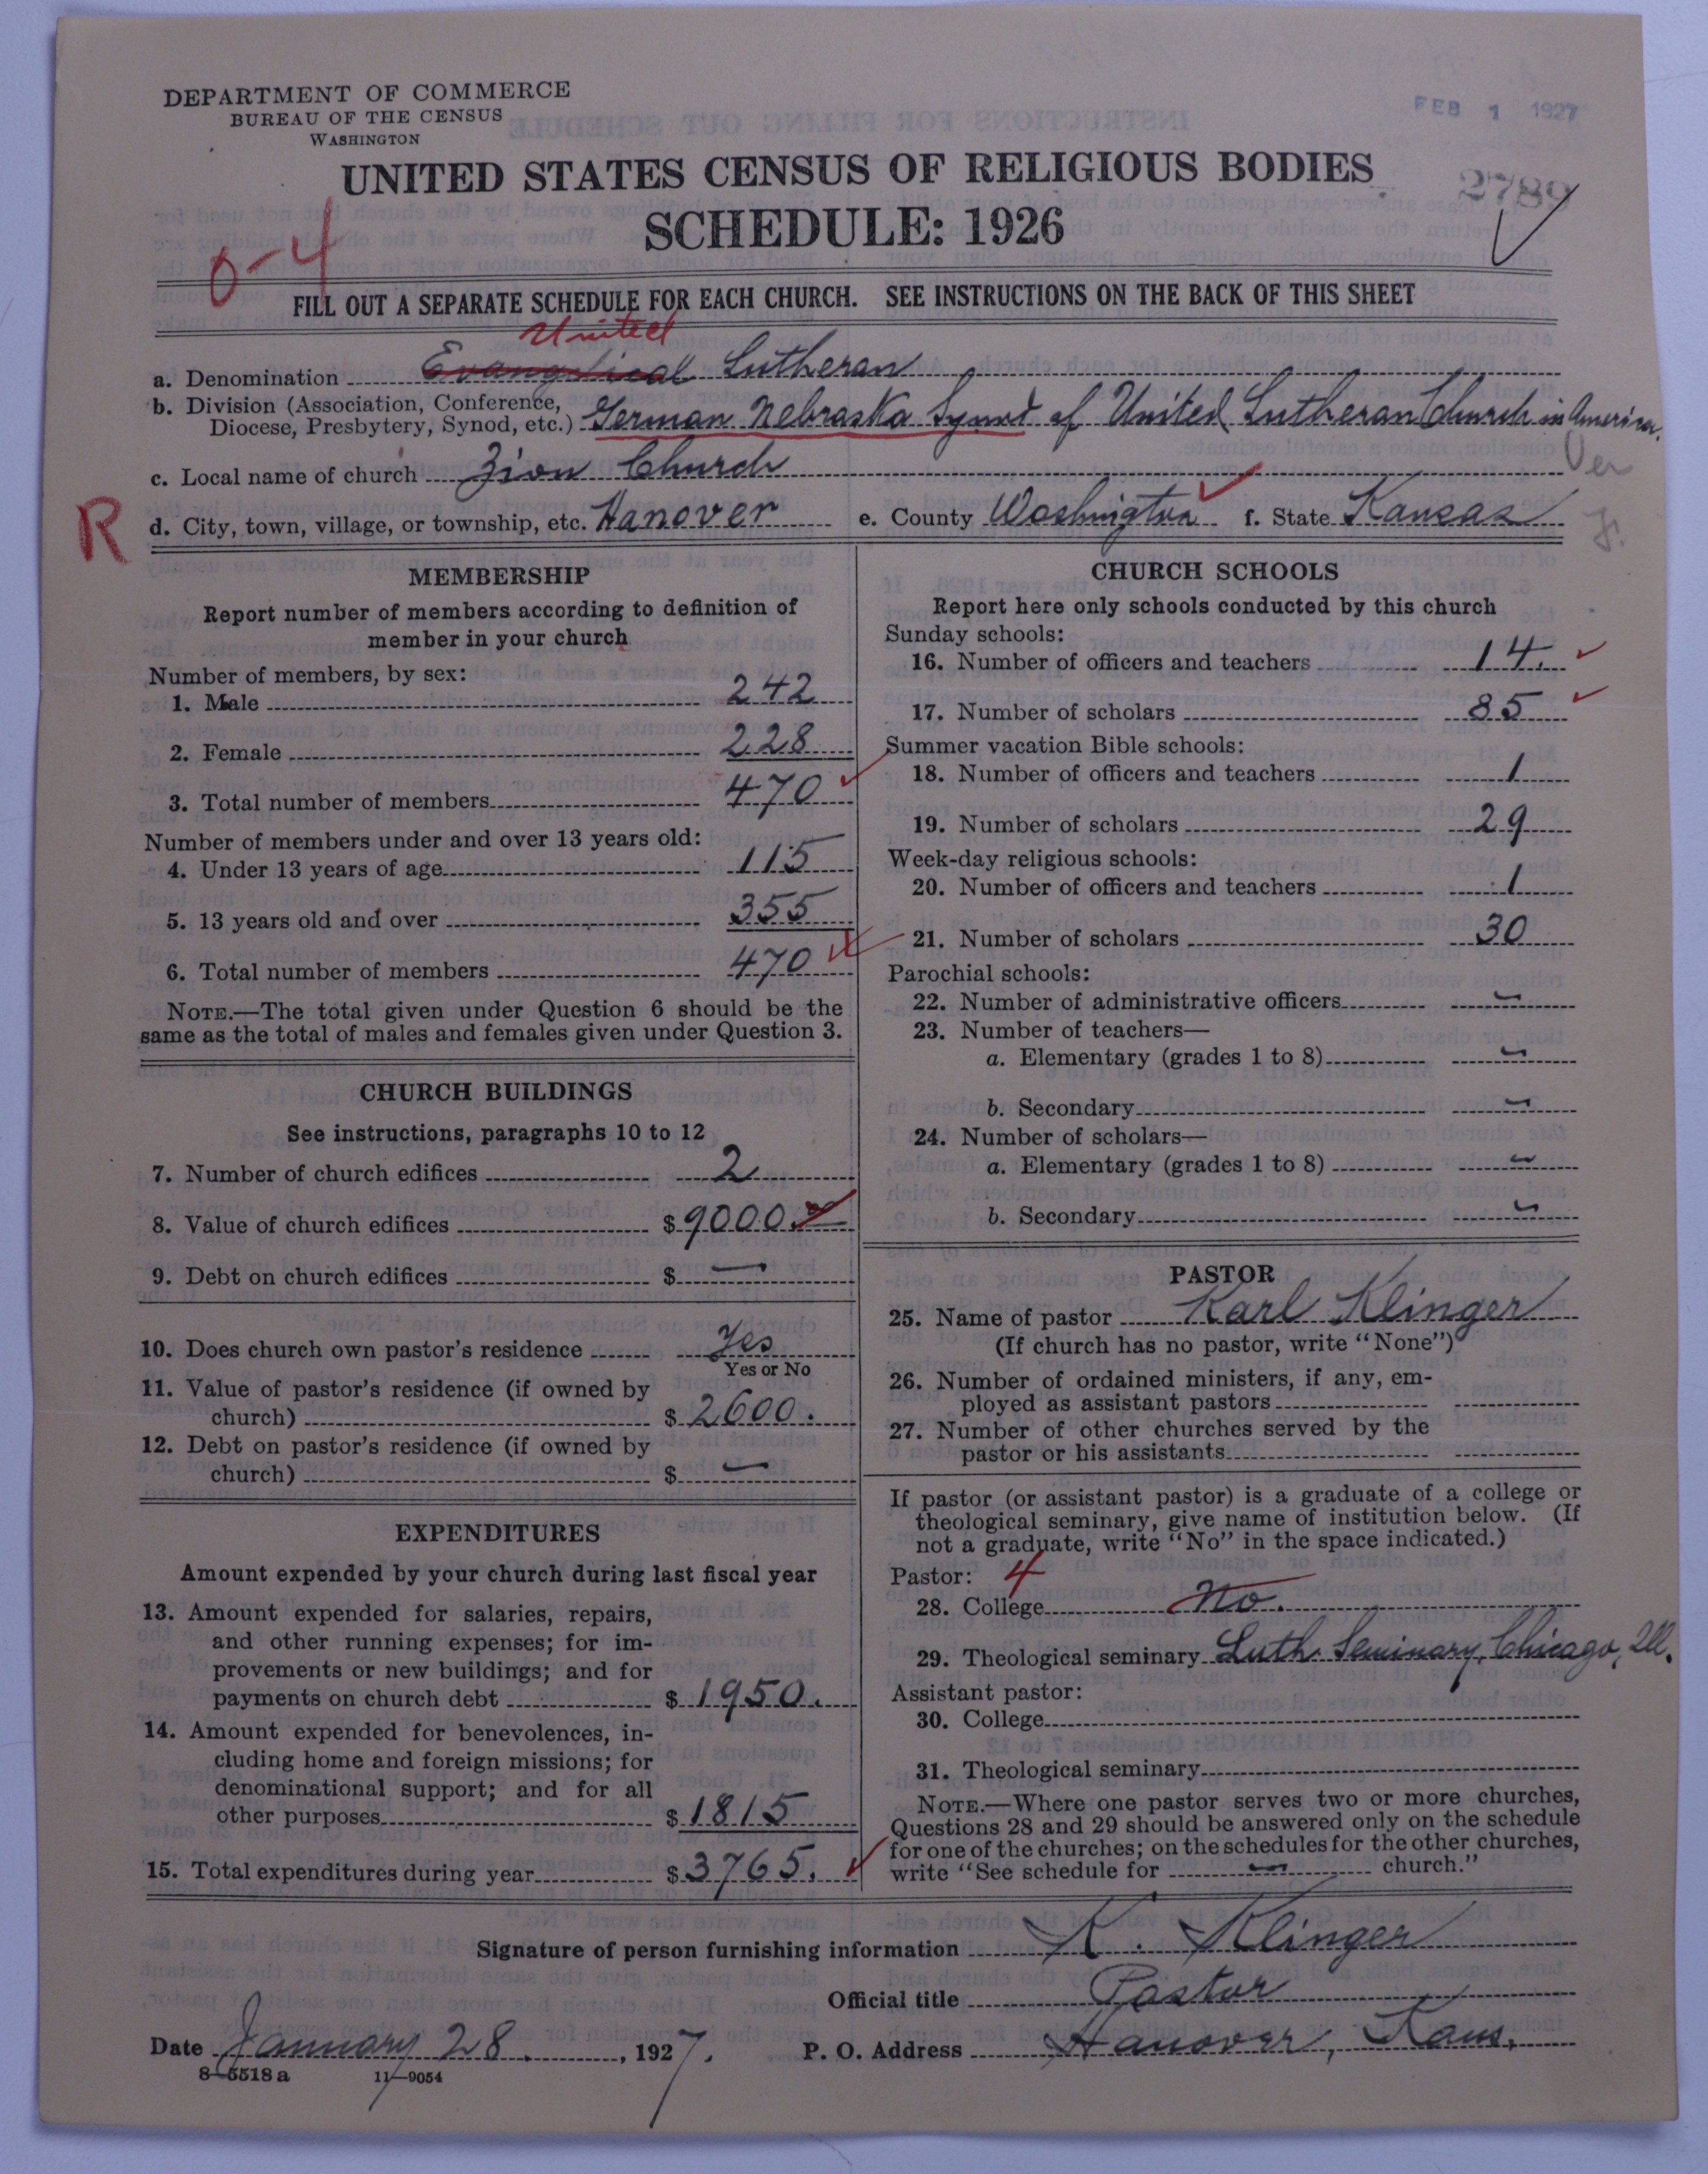 DEPARTMENT OF COMMERCE
BUREAU OF THE CENSUS
WASHINGTON
FEB 1 1927
UNITED STATES CENSUS OF RELIGIOUS BODIES
2789
SCHEDULE: 1926
0-4
FILL OUT A SEPARATE SCHEDULE FOR EACH CHURCH. SEE INSTRUCTIONS ON THE BACK OF THIS SHEET
United
a. Denomination Evangelical Lutheran
b. Division (Association, Conference, Diocese, Presbytery, Synod, etc.) German Nebraska Synod of United Lutheran Church in America.
c. Local name of church Zion Church
R
d. City, town, village, or township, etc. Hanover e. County Washington f. State Kansas
MEMBERSHIP
Report number of members according to definition of
member in your church
Number of members, by sex:
1. Male 242
2. Female 228
3. Total number of members 470
Number of members under and over 13 years old:
4. Under 13 years of age 115
5. 13 years old and over 355
6. Total number of members 470
NOTE.—The total given under Question 6 should be the
same as the total of males and females given under Question 3.
CHURCH BUILDINGS
See instructions, paragraphs 10 to 12
7. Number of church edifices 2
8. Value of church edifices $9000.
9. Debt on church edifices $ —
10. Does church own pastor's residence Yes
Yes or No
11. Value of pastor's residence (if owned by
church) $2600.
12. Debt on pastor's residence (if owned by
church) $ —
EXPENDITURES
Amount expended by your church during last fiscal year
13. Amount expended for salaries, repairs,
and other running expenses; for im-
provements or new buildings; and for
payments on church debt $1950.
14. Amount expended for benevolences, in-
cluding home and foreign missions; for
denominational support; and for all
other purposes $1815
15. Total expenditures during year $3765.
CHURCH SCHOOLS
Report here only schools conducted by this church
Sunday schools:
16. Number of officers and teachers 14.
17. Number of scholars 85
Summer vacation Bible schools:
18. Number of officers and teachers 1
19. Number of scholars 29
Week-day religious schools:
20. Number of officers and teachers 1
21. Number of scholars 30
Parochial schools:
22. Number of administrative officers —
23. Number of teachers—
a. Elementary (grades 1 to 8) —
b. Secondary —
24. Number of scholars—
a. Elementary (grades 1 to 8) —
b. Secondary —
PASTOR
25. Name of pastor Karl Klinger
(If church has no pastor, write "None")
26. Number of ordained ministers, if any, em-
ployed as assistant pastors
27. Number of other churches served by the
pastor or his assistants
If pastor (or assistant pastor) is a graduate of a college or
theological seminary, give name of institution below. (If
not a graduate, write "No" in the space indicated.)
Pastor: 4
28. College No.
29. Theological seminary Luth. Seminary, Chicago, Ill.
Assistant pastor:
30. College
31. Theological seminary
NOTE.—Where one pastor serves two or more churches,
Questions 28 and 29 should be answered only on the schedule
for one of the churches; on the schedules for the other churches,
write "See schedule for — church."
Signature of person furnishing information K. Klinger
Official title Pastor
Date January 28, 1927. P. O. Address Hanover, Kans.
8-5518a 11-9054